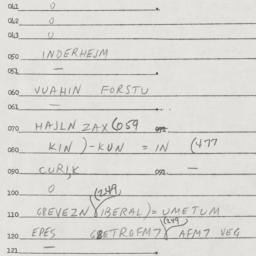 041 0
042 0
043 0
050 INDERHEJM
051 —
060 VUAHIN FORSTU
061 —
070 HAJLN ZAX (659
080 KIN )-KUN = IN (477
090 CURJK 091 —
100 0 (249
110 GREVEZN (IBERAL) = UMETUM
120 EPES (249 AFM7 VEG
121 —